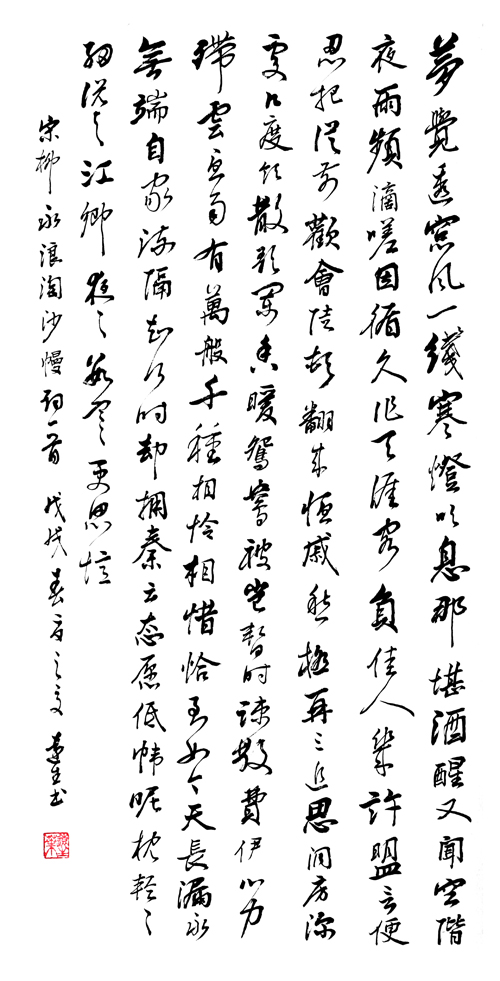 夢覺透窗風一綫寒燈吹息那堪酒醒又聞空階
夜雨頻滴嗟因循久作天涯客負佳人幾許盟言便
忍把從前歡會陡頓翻成憂戚愁極再三追思洞房深
處幾度飲散歌闌香暖鴛鴦被豈暫時疎散費伊心力
殢雲尤雨有萬般千種相憐相惜恰到如今天長漏永
無端自家疏隔知何時却擁秦云态愿低幃昵枕輕〻
細說與江鄉夜〻數寒更思憶
宋柳永浪淘沙慢詞一首 戊戌春夏之交 書